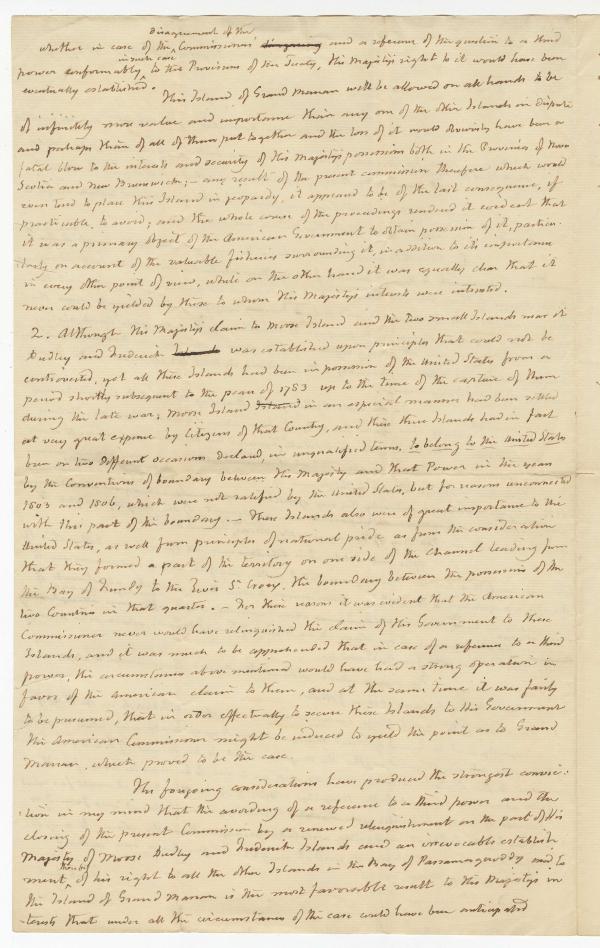 disagreement of the
whether in case of the Commissioners' disagreeing and a reference of the question to a third
in such case
power conformably to the Provisions of the Treaty, His Majesty's right to it would have been
eventually established.
This Island of Grand Manan will be allowed on all hands to be
of infinitely more value and importance than any one of the other Islands in dispute
and perhaps than of all of them put together and the loss of it would obviously have been a
fatal blow to the interests and security of His Majesty's possessions both in the Provinces of Nova
Scotia and New Brunswick; — any result of the present commission therefore which would
even tend to place this Island in jeopardy, it appeared to be of the last consequence, if
practicable, to avoid; and the whole course of the proceedings rendered it evident that
it was a primary object of the American Government to obtain possession of it, particu-
larly on account of the valuable fisheries surrounding it, in addition to its importance
in every other point of view, while on the other hand it was equally clear that it
never could be yielded by those to whom His Majesty's interests were intrusted.
2. Although His Majesty's claim to Moose Island and the two small Islands near it
Dudley and Frederick Islands was established upon principles that could not be
controverted, yet all these Islands had been in possession of the United States from a
period shortly subsequent to the peace of 1783 up to the time of the capture of them
during the late war; Moose Island Island in an especial manner had been settled
at very great expence by Citizens of that Country, and these three Islands had in fact
been on two different occasions declared, in unqualified terms, to belong to the United States
by the Conventions of boundary between His Majesty and that Power in the years
1803 and 1806, which were not ratified by the United States, but for reasons unconnected
with this part of the boundary. — These Islands also were of great importance to the
United States, as well from principles of national pride as from the consideration
that they formed a part of the territory on one side of the channel leading from
the Bay of Fundy to the River St Croix, the boundary between the possessions of the
two Countries in that quarter. — For these reasons it was evident that the American
Commissioner never would have relinquished the claim of his Government to these
Islands, and it was much to be apprehended that in case of a reference to a third
power, the circumstances above mentioned would have had a strong operation in
favor of the American claim to them, and at the same time it was fairly
to be presumed, that in order effectually to secure these Islands to His Government
the American Commissioner might be induced to yield the point as to Grand
Manan, which proved to be the case.
The foregoing considerations have produced the strongest convic-
tion in my mind that the avoiding of a reference to a third power and the
closing of the present Commission by a renewed relinquishment on the part of His
Majesty of Moose Dudley and Frederick Islands and an irrevocable establish
ment thereby of his right to all the other Islands in the Bay of Passamaquoddy and to
the Island of Grand Manan is the most favorable result to His Majesty's in
terests that under all the circumstances of the case could have been anticipated